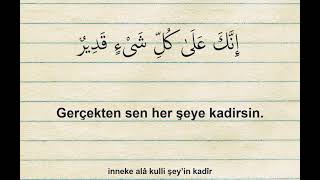 إِنَّكَ عَلَىٰ كُلِّ شَىْءٍ قَدِيرٌ
Gerçekten sen her şeye kadirsin.
inneke alâ kulli şey'in kadîr